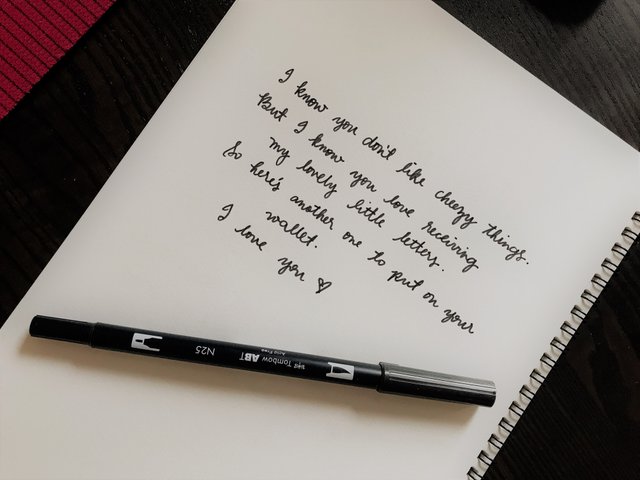 I know you don't like cheezy things.
But I know you love receiving
my lovely little letters.
So here's another one to put on your
wallet.
I love you ♡
N25
Tombow ABT
Acid Free